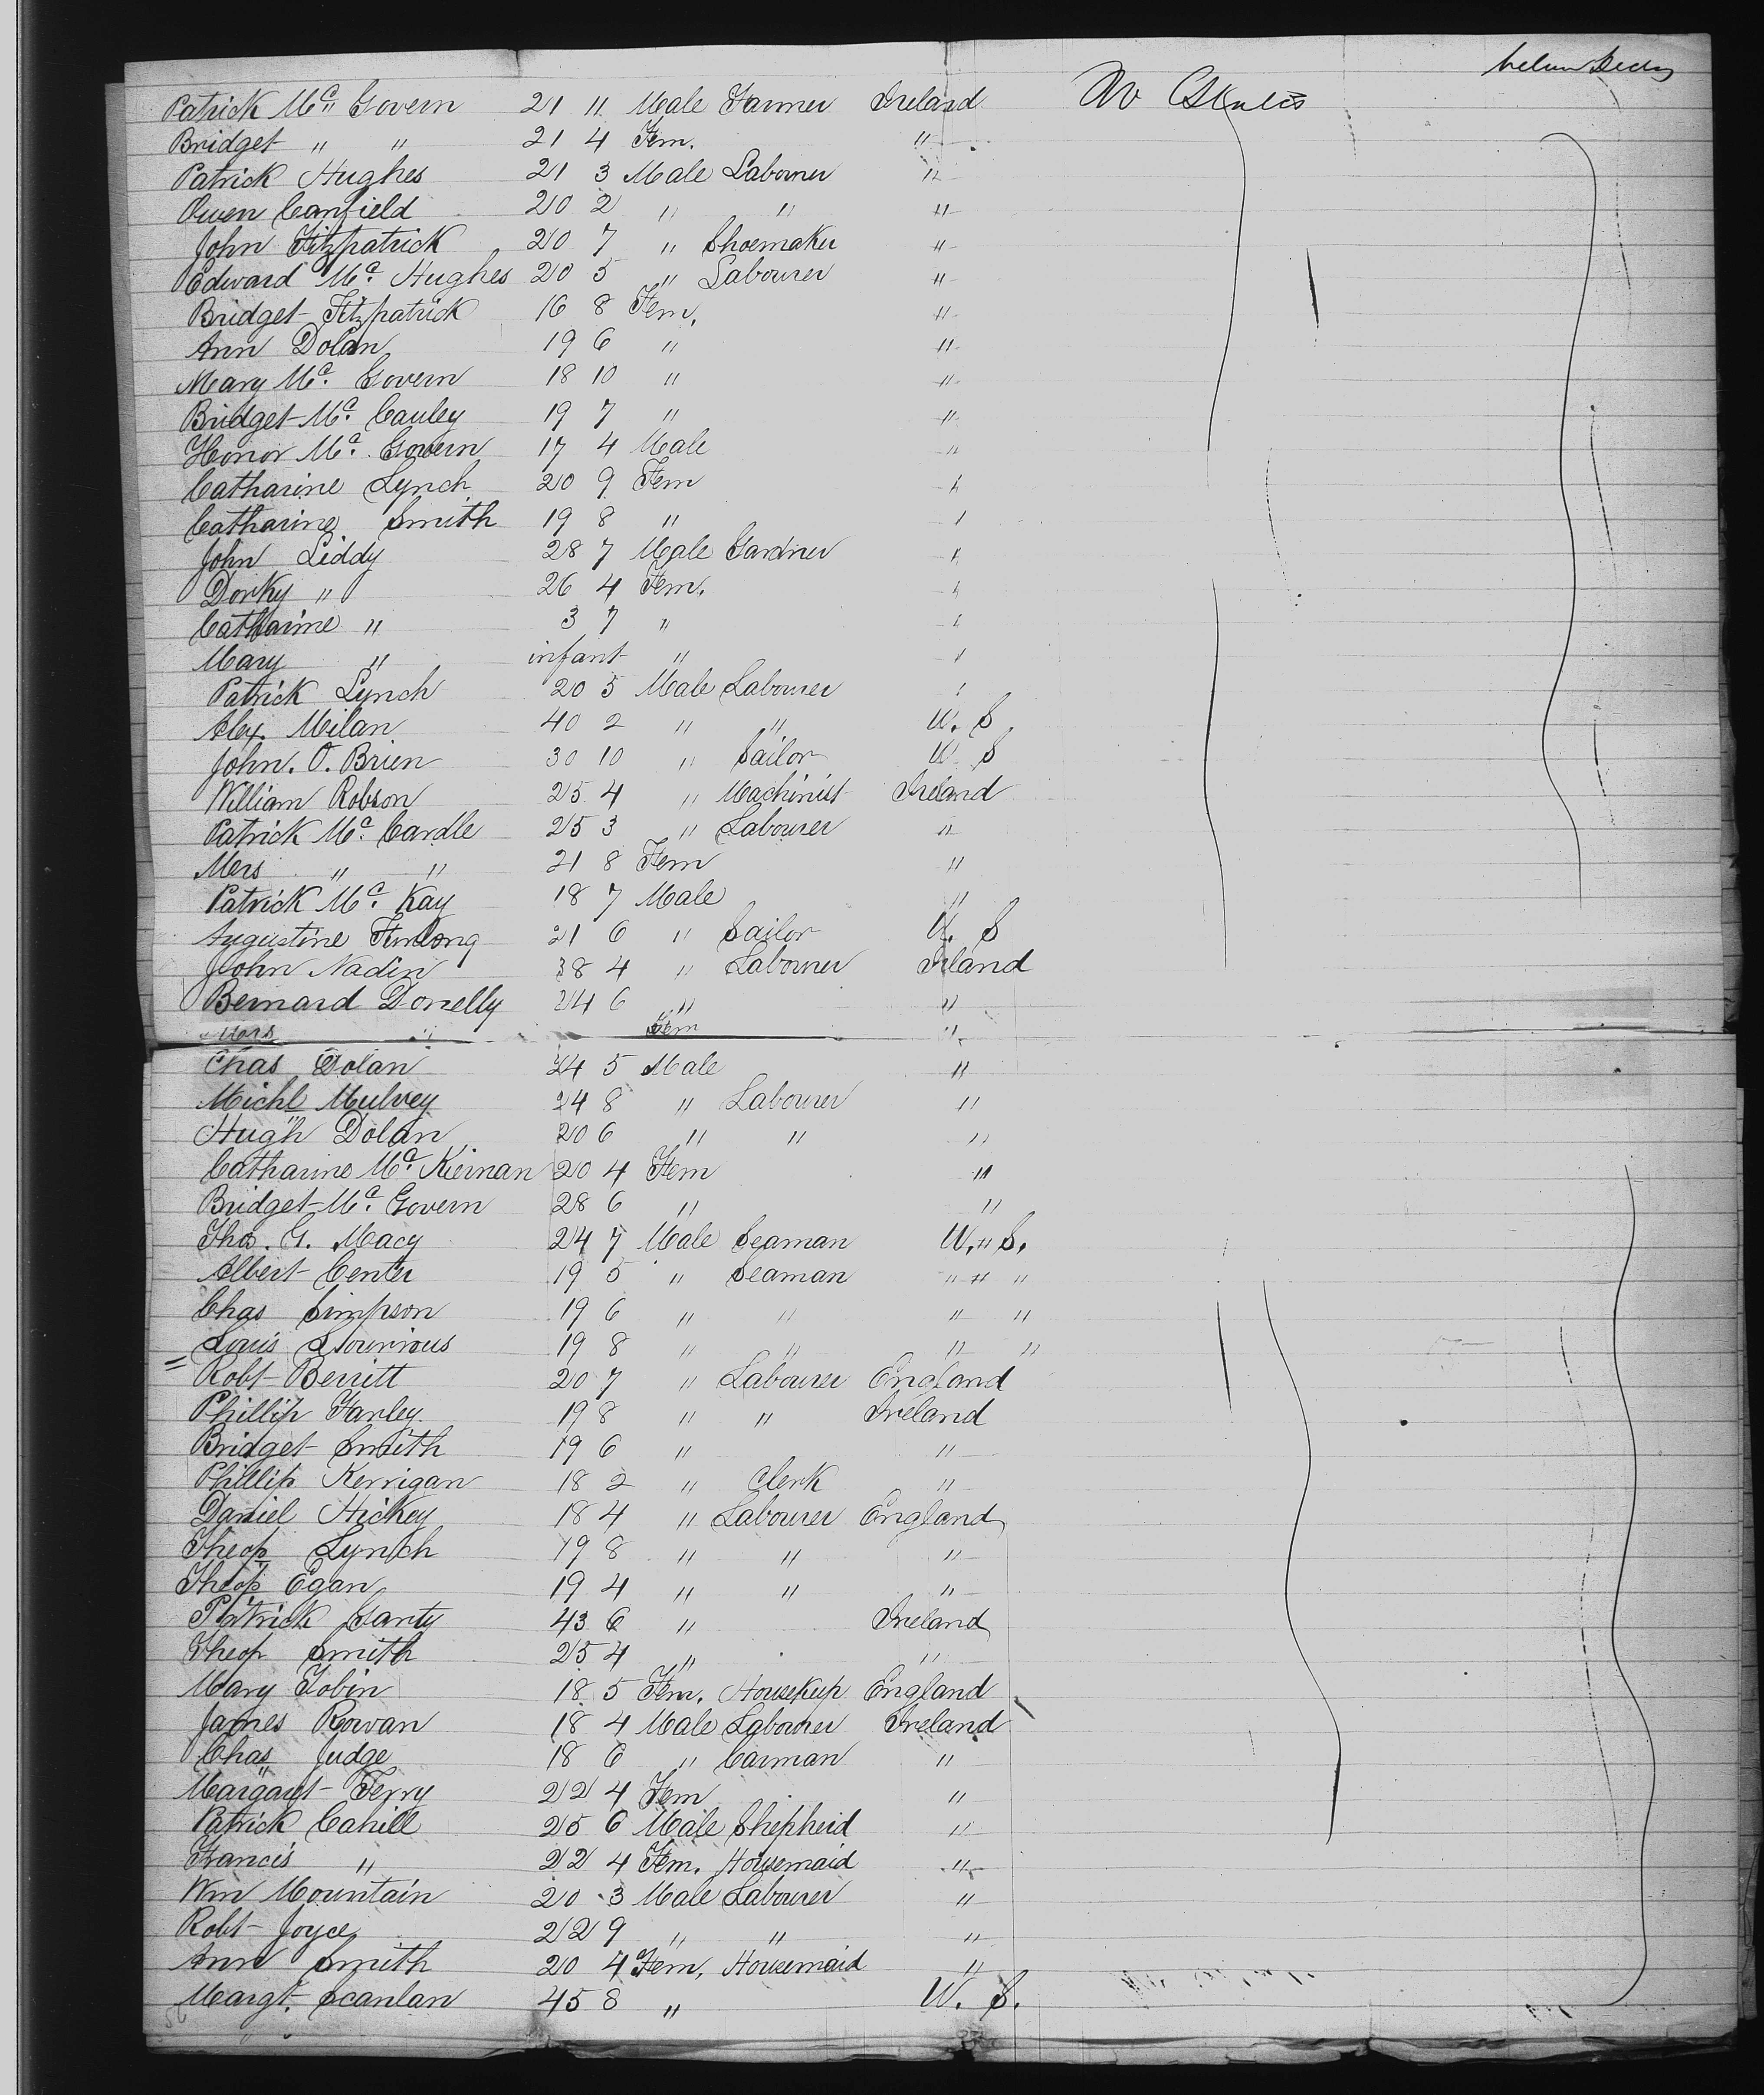 between Decks
Patrick Mc Govern 21 11 Male Farmer Ireland U States
Bridget " " 21 4 Fem. "
Patrick Hughes 21 3 Male Labourer "
Owen Canfield 20 2 " " "
John Fitzpatrick 20 7 " Shoemaker "
Edward Mc. Hughes 20 5 " Labourer "
Bridget Fitzpatrick 16 8 Fem. "
Ann Dolan 19 6 " "
Mary Mc. Govern 18 10 " "
Bridget Mc. Cauley 19 7 " "
Honor Mc. Govern 17 4 Male "
Catharine Lynch 20 9 Fem "
Catharine Smith 19 8 " "
John Liddy 28 7 Male Gardner "
Dorky " 26 4 Fem. "
Catharine " 3 7 " "
Mary " infant " "
Patrick Lynch 20 5 Male Labourer "
Alex. Milan 40 2 " " U. S
John. O. Brien 30 10 " Sailor U S
William Robson 25 4 " Machinist Ireland
Patrick Mc. Cardle 25 3 " Labourer "
Mers " " 21 8 Fem "
Patrick Mc. Kay 18 7 Male "
Augustine Furlong 21 6 " Sailor U. S
John Nadin 38 4 " Labourer Irland
Bernard Donelly 24 6 " "
Mars " Fem "
Chas Dolan 24 5 Male "
Michl Mulvey 24 8 " Labourer "
Hugh Dolan 20 6 " " "
Catharine Mc. Kiernan 20 4 Fem "
Bridget Mc. Govern 28 6 " "
Thos. G. Macy 24 7 Male Seaman U. " S.
Albert Center 19 5 " Seaman " " "
Chas Simpson 19 6 " " " "
Louis 19 8 " " " "
Robt Berritt 20 7 " Labourer England
Phillip Farley 19 8 " " Ireland
Bridget Smith 19 6 " "
Phillip Kerrigan 18 2 " Clerk "
Daniel Hickey 18 4 " Labourer England
Theop Lynch 19 8 " " "
Theop Egan 19 4 " " "
Patrick Garty 43 6 " Ireland
Theop Smith 25 4 " "
Mary Tobin 18 5 Fem. Housekeep England
James Rowan 18 4 Male Labourer Ireland
Chas Judge 18 6 " Carman "
Margaret Terry 22 4 Fem "
Patrick Cahill 25 6 Male Shepherd "
Francis " 22 4 Fem. Housemaid "
Wm Mountain 20 3 Male Labourer "
Robt Joyce 22 9 " " "
Ann Smith 20 4 Fem. Housemaid "
Margt. Scanlan 45 8 " U. S.